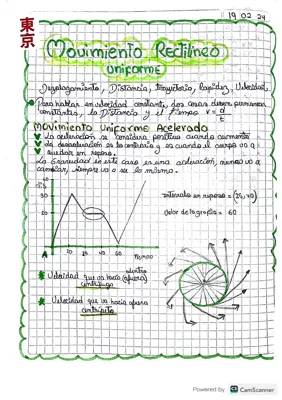 19 02 24
東京
Movimiento Rectilíneo
Uniforme
Desplazamiento, Distancia, Trayectoria, Rapidez, Velocidad.
Para hablar en velocidad constante, dos cosas deben permanecer
constantes, la Distancia y el tiempo v = d/t
Movimiento Uniforme Acelerado
La aceleración se considera positiva cuando aumenta
La desaceleración es lo contrario y es cuando el cuerpo va a
quedar en reposo.
La Gravedad en este caso es una aceleración, nunca va a
cambiar, siempre va a ser la misma.
Intervalo en reposo = (25, 40)
Valor de la gráfica = 60
30
20
A
20
40
60
Tiempo
adentro
Velocidad que va hacia (afuera)
centrífuga
Velocidad que va hacia afuera
centrípeta
Powered by CamScanner